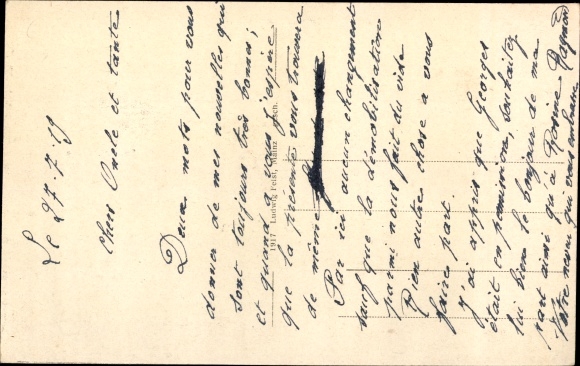 Le 27.7.19
Chers Oncle et tante
Deux mots pour vous
donner de mes nouvelles qui
sont toujours très bonnes;
et quand à vous j'espère
que la présente vous trouvera
de même
Par ici aucun changment
sauf que la démobilisation
parmi nous fait du vide
Rien autre chose a vous
faire part.
J'ai appris que Georges
était en permission, souhaitez
lui bien le bonjour de ma
part ainsi qu'à Rosine
Votre neveu qui vous embrasse Raymond
1917 Ludwig Feist, Mainz